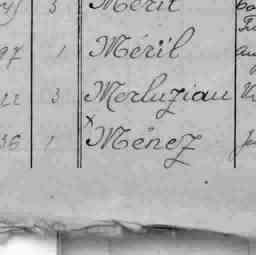 3 Méril
97 1 Méril
22 3 Merluzian
x
36 1 Ménez